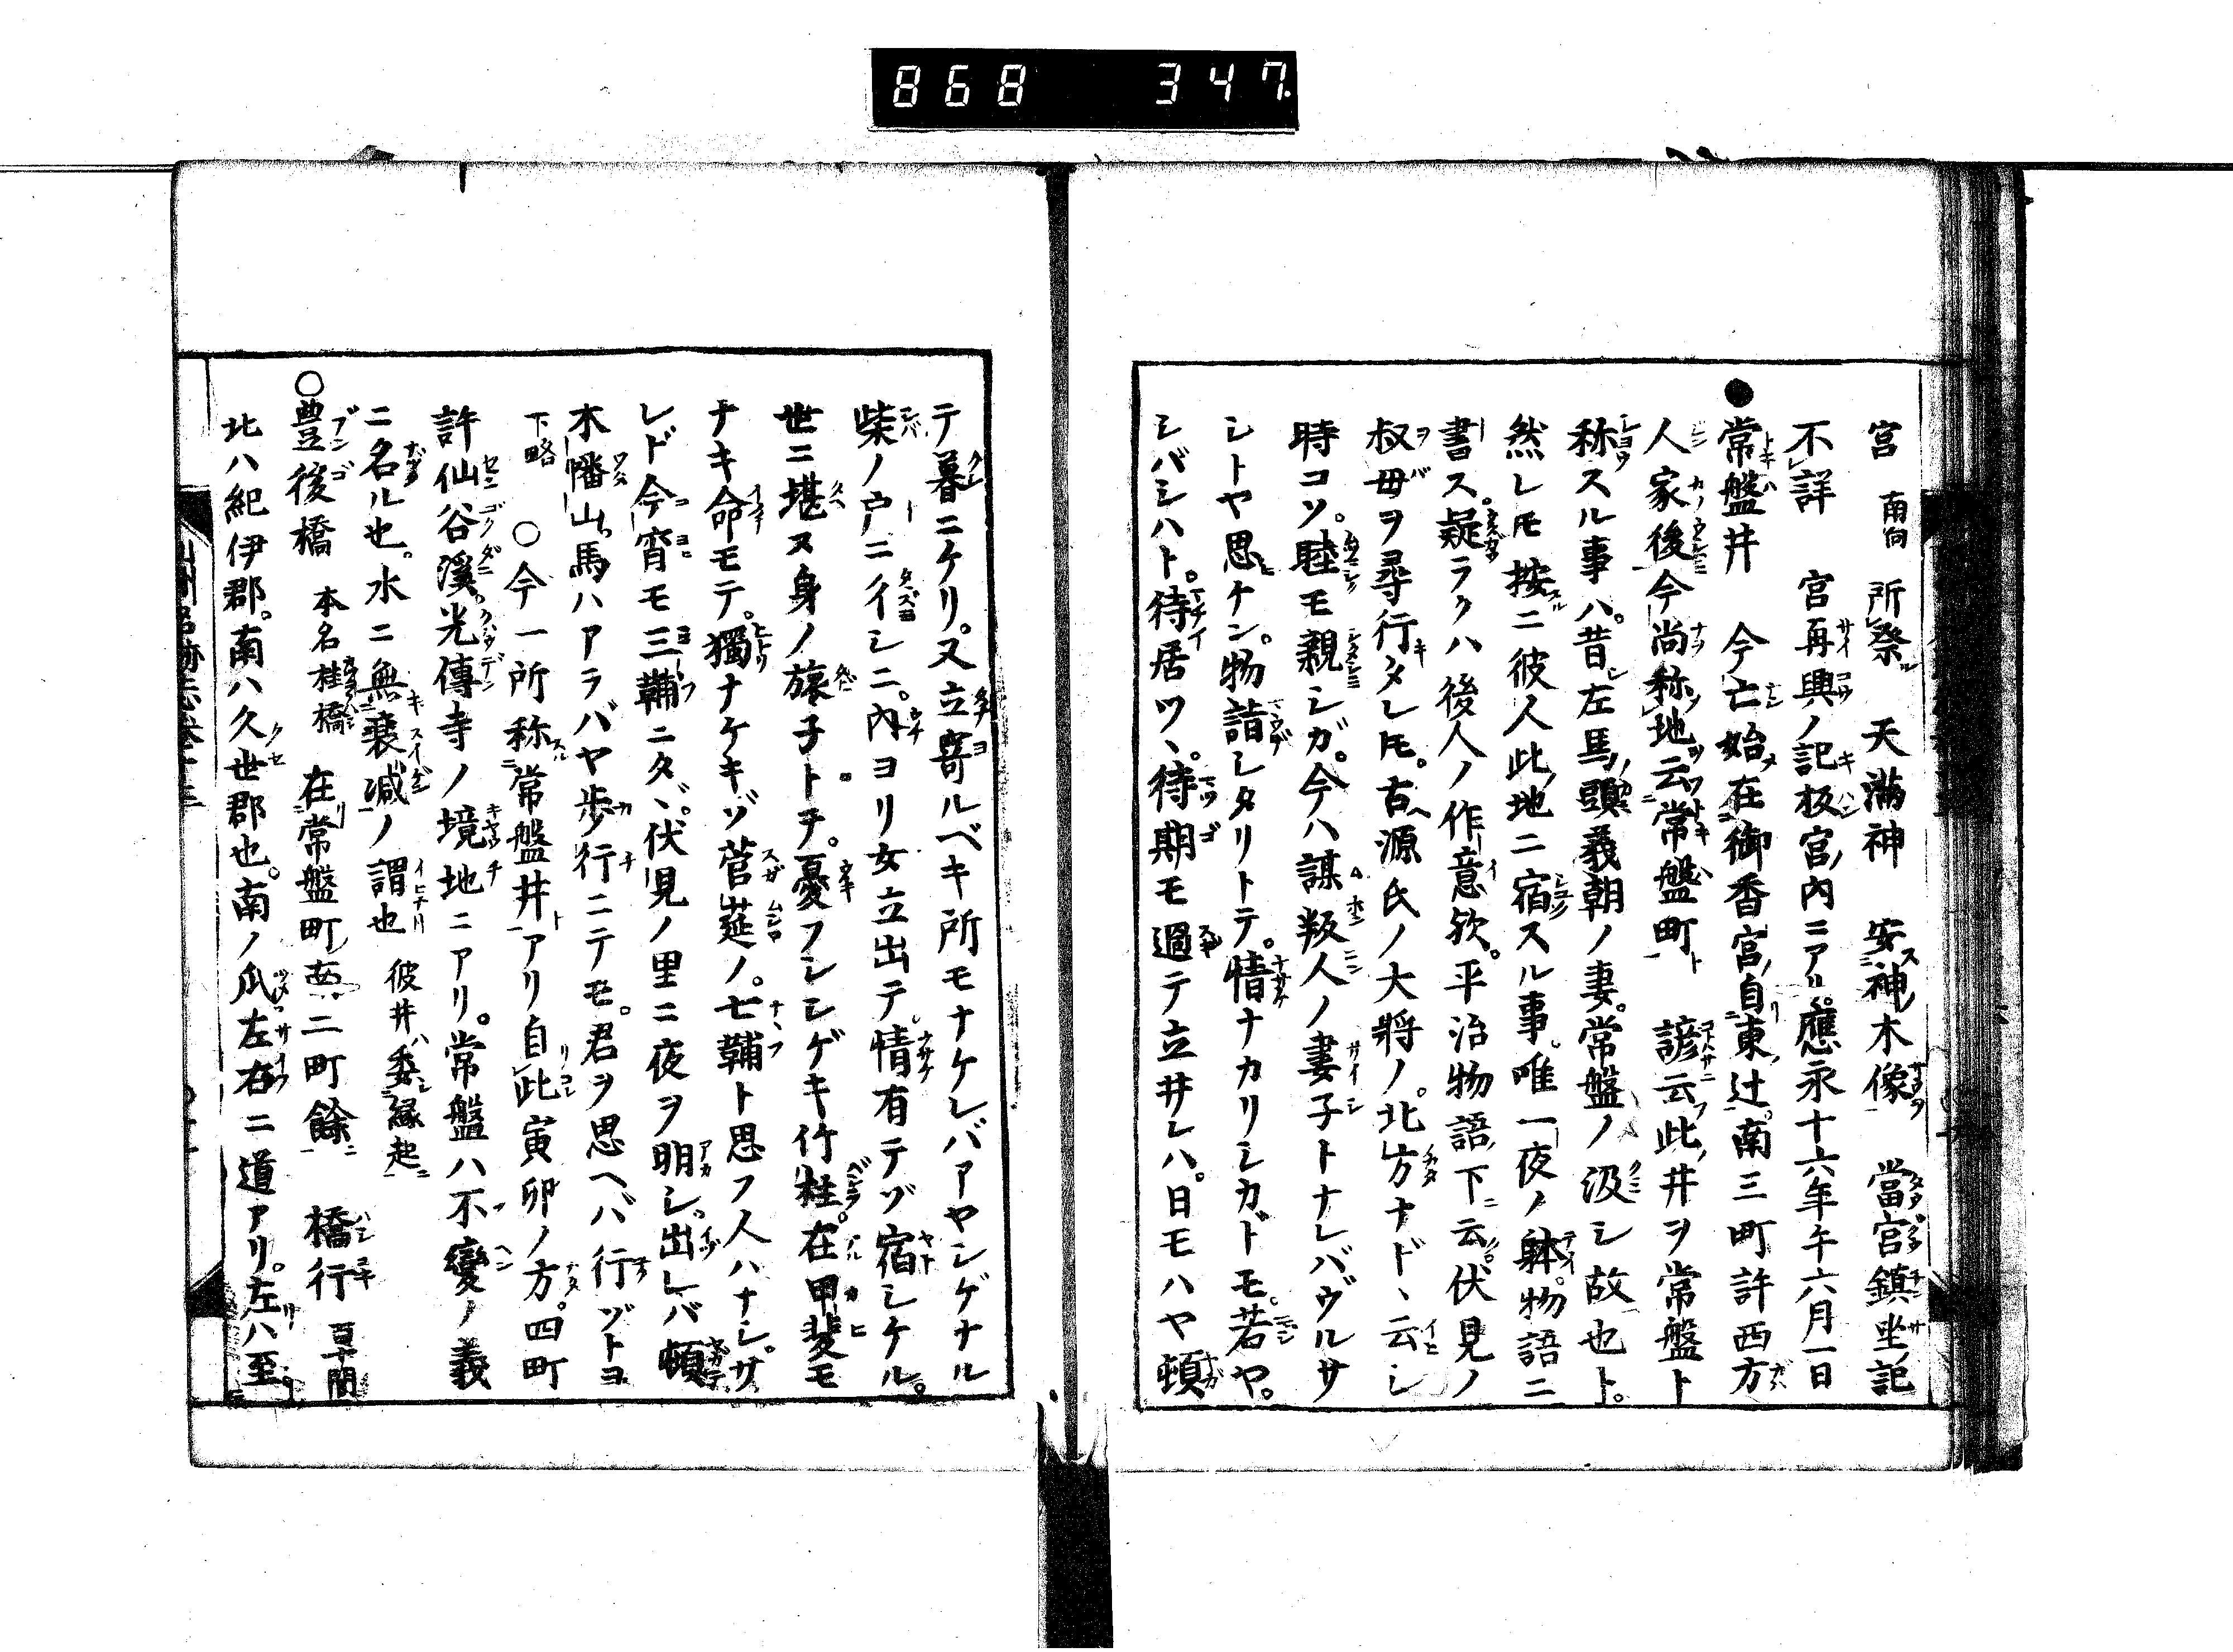 868 347
宮 南向 所祭 天満神 安神木像 當宮鎮坐記
不詳 宮再興ノ記板宮内ニアリ應永十六年午六月一日
●常盤井 今亡始在御香宮自東辻南三町許西方
人家後今尚称地云常盤町 諺云此井ヲ常盤ト
称スル事ハ。昔左馬頭義朝ノ妻。常盤ノ汲シ故也ト。
然レ𪜈按ニ彼人此地ニ宿スル事。唯一夜ノ躰。物語ニ
書ス。疑ラクハ後人ノ作意欤。平治物語下云。伏見ノ
叔母ヲ尋行タレ𪜈。古源氏ノ大將ノ。北方ナド丶云レシ
時コソ。睦モ親シガ。今ハ謀叛人ノ妻子トナレバウルサ
シトヤ思ケン。物詣シタリトテ。情ナカリシカドモ。若ヤ。
シバシハト。待居ツ丶。待期モ過テ立井レハ。日モハヤ頓
テ暮ニケリ。又立寄ルベキ所モナケレバアヤシゲナル
柴ノ戸ニイシニ。内ヨリ女立出テ情有テゾ宿シケル。
世ニ堪ヌ身ノ旅子トチ。憂フシシゲキ竹柱。在甲斐モ
ナキ命モテ。獨ナケキゾ菅莚ノ。七鞴ト思フ人ハナシ。サ
レド今宵モ三鞴ニタ丶゙。伏見ノ里ニ夜ヲ明シ。出レバ頓
木幡山。馬ハアラバヤ歩行ニテモ。君ヲ思ヘバ行ゾトヨ
下略 ○今一所称常盤井アリ自此寅卯ノ方。四町
許仙谷溪光傳寺ノ境地ニアリ。常盤ハ不變ノ義
ニ名ル也。水ニ無衰減ノ謂也 彼井ハ委縁起ニ
○豊後橋 本名桂橋 在常盤町南二町餘 橋行 百間
北ハ紀伊郡。南ハ久世郡也。南ノ爪左右ニ道アリ。左ハ至